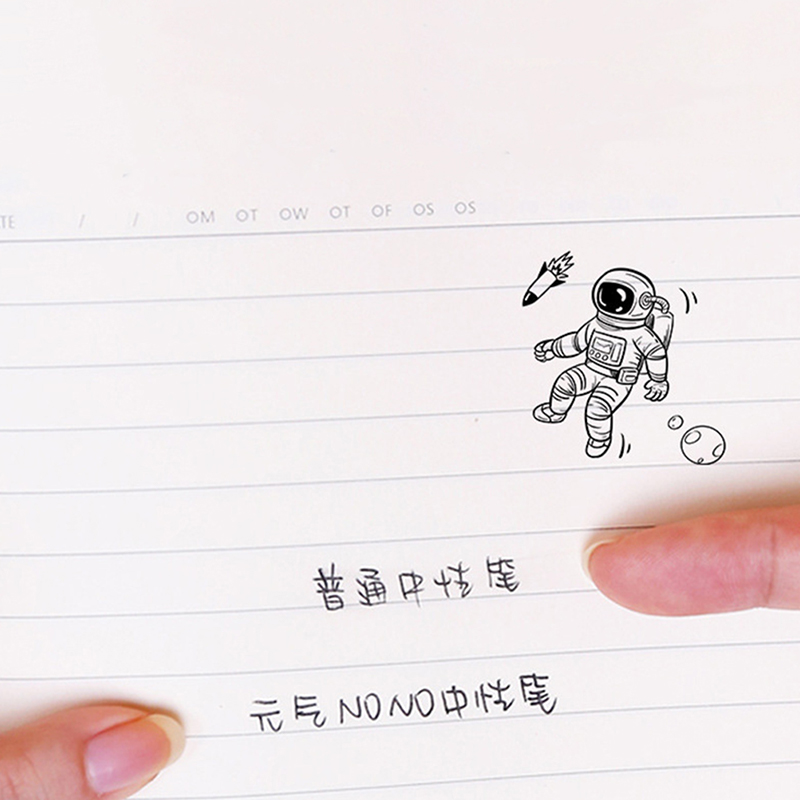 TE / / OM OT OW OT OF OS OS
普通中性笔
元气NONO中性笔